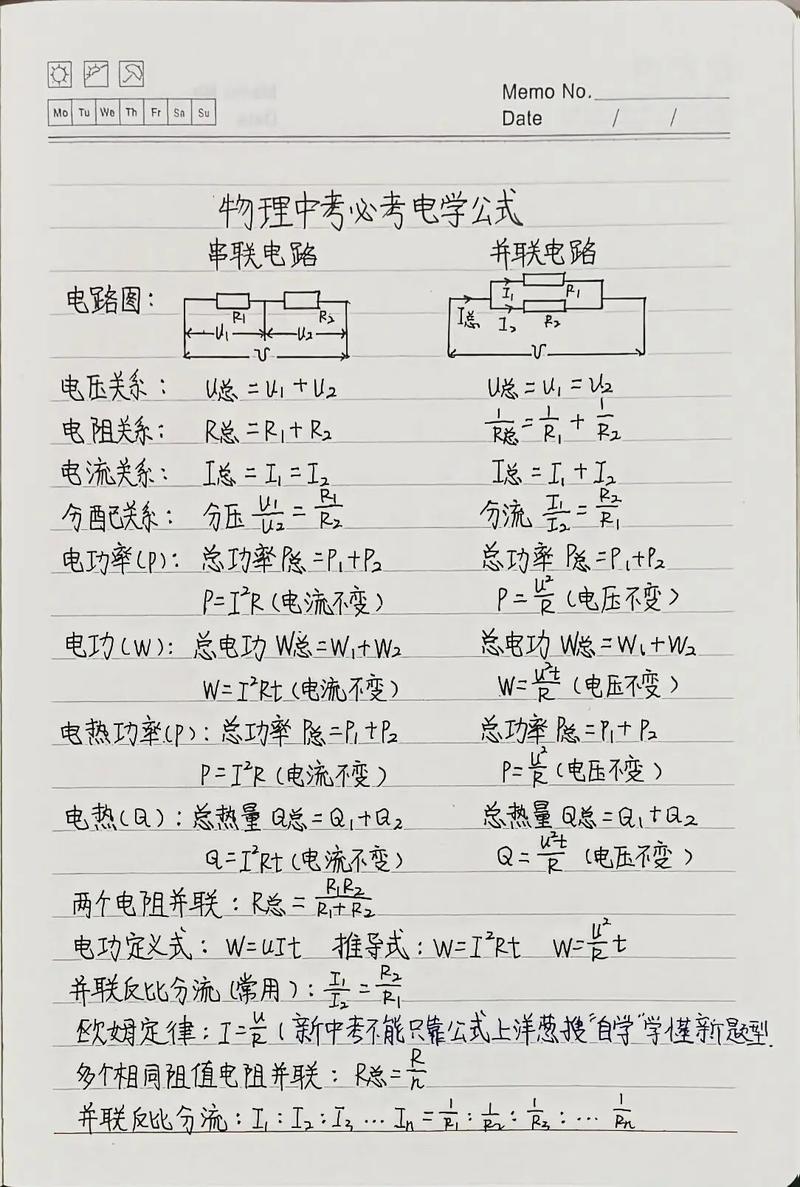 Memo No.
Mo Tu We Th Fr Sa Su
Date / /
物理中考必考电学公式
串联电路 并联电路
电路图: R₁ R₂ U₁ U₂ U I总 I₁ R₁ I₂ R₂ U
电压关系: U总=U₁+U₂ U总=U₁=U₂
电阻关系: R总=R₁+R₂ 1/R总=1/R₁+1/R₂
电流关系: I总=I₁=I₂ I总=I₁+I₂
分配关系: 分压 U₁/U₂=R₁/R₂ 分流 I₁/I₂=R₂/R₁
电功率(P): 总功率 P总=P₁+P₂ 总功率 P总=P₁+P₂
P=I²R(电流不变) P=U²/R(电压不变)
电功(W): 总电功 W总=W₁+W₂ 总电功 W总=W₁+W₂
W=I²Rt(电流不变) W=U²t/R(电压不变)
电热功率(P): 总功率 P总=P₁+P₂ 总功率 P总=P₁+P₂
P=I²R(电流不变) P=U²/R(电压不变)
电热(Q): 总热量 Q总=Q₁+Q₂ 总热量 Q总=Q₁+Q₂
Q=I²Rt(电流不变) Q=U²t/R(电压不变)
两个电阻并联: R总=R₁R₂/R₁+R₂
电功定义式: W=UIt 推导式: W=I²Rt W=U²/R t
并联反比分流(常用): I₁/I₂=R₂/R₁
欧姆定律: I=U/R(新中考不能只靠公式上洋葱搜"自学"学懂新题型.
多个相同阻值电阻并联: R总=R/n
并联反比分流: I₁:I₂:I₃…Iₙ=1/R₁:1/R₂:1/R₃:…1/Rₙ